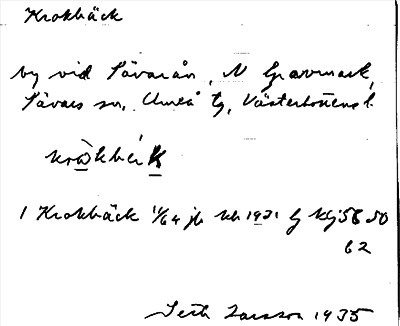 Krokbäck
by vid Sävarån, N Gravmark,
Sävars sn, Umeå tg, Västerbottens l.
1 Krokbäck 1/64 jb 1931 lj klj 58 50
62
Seth Larsson 1935